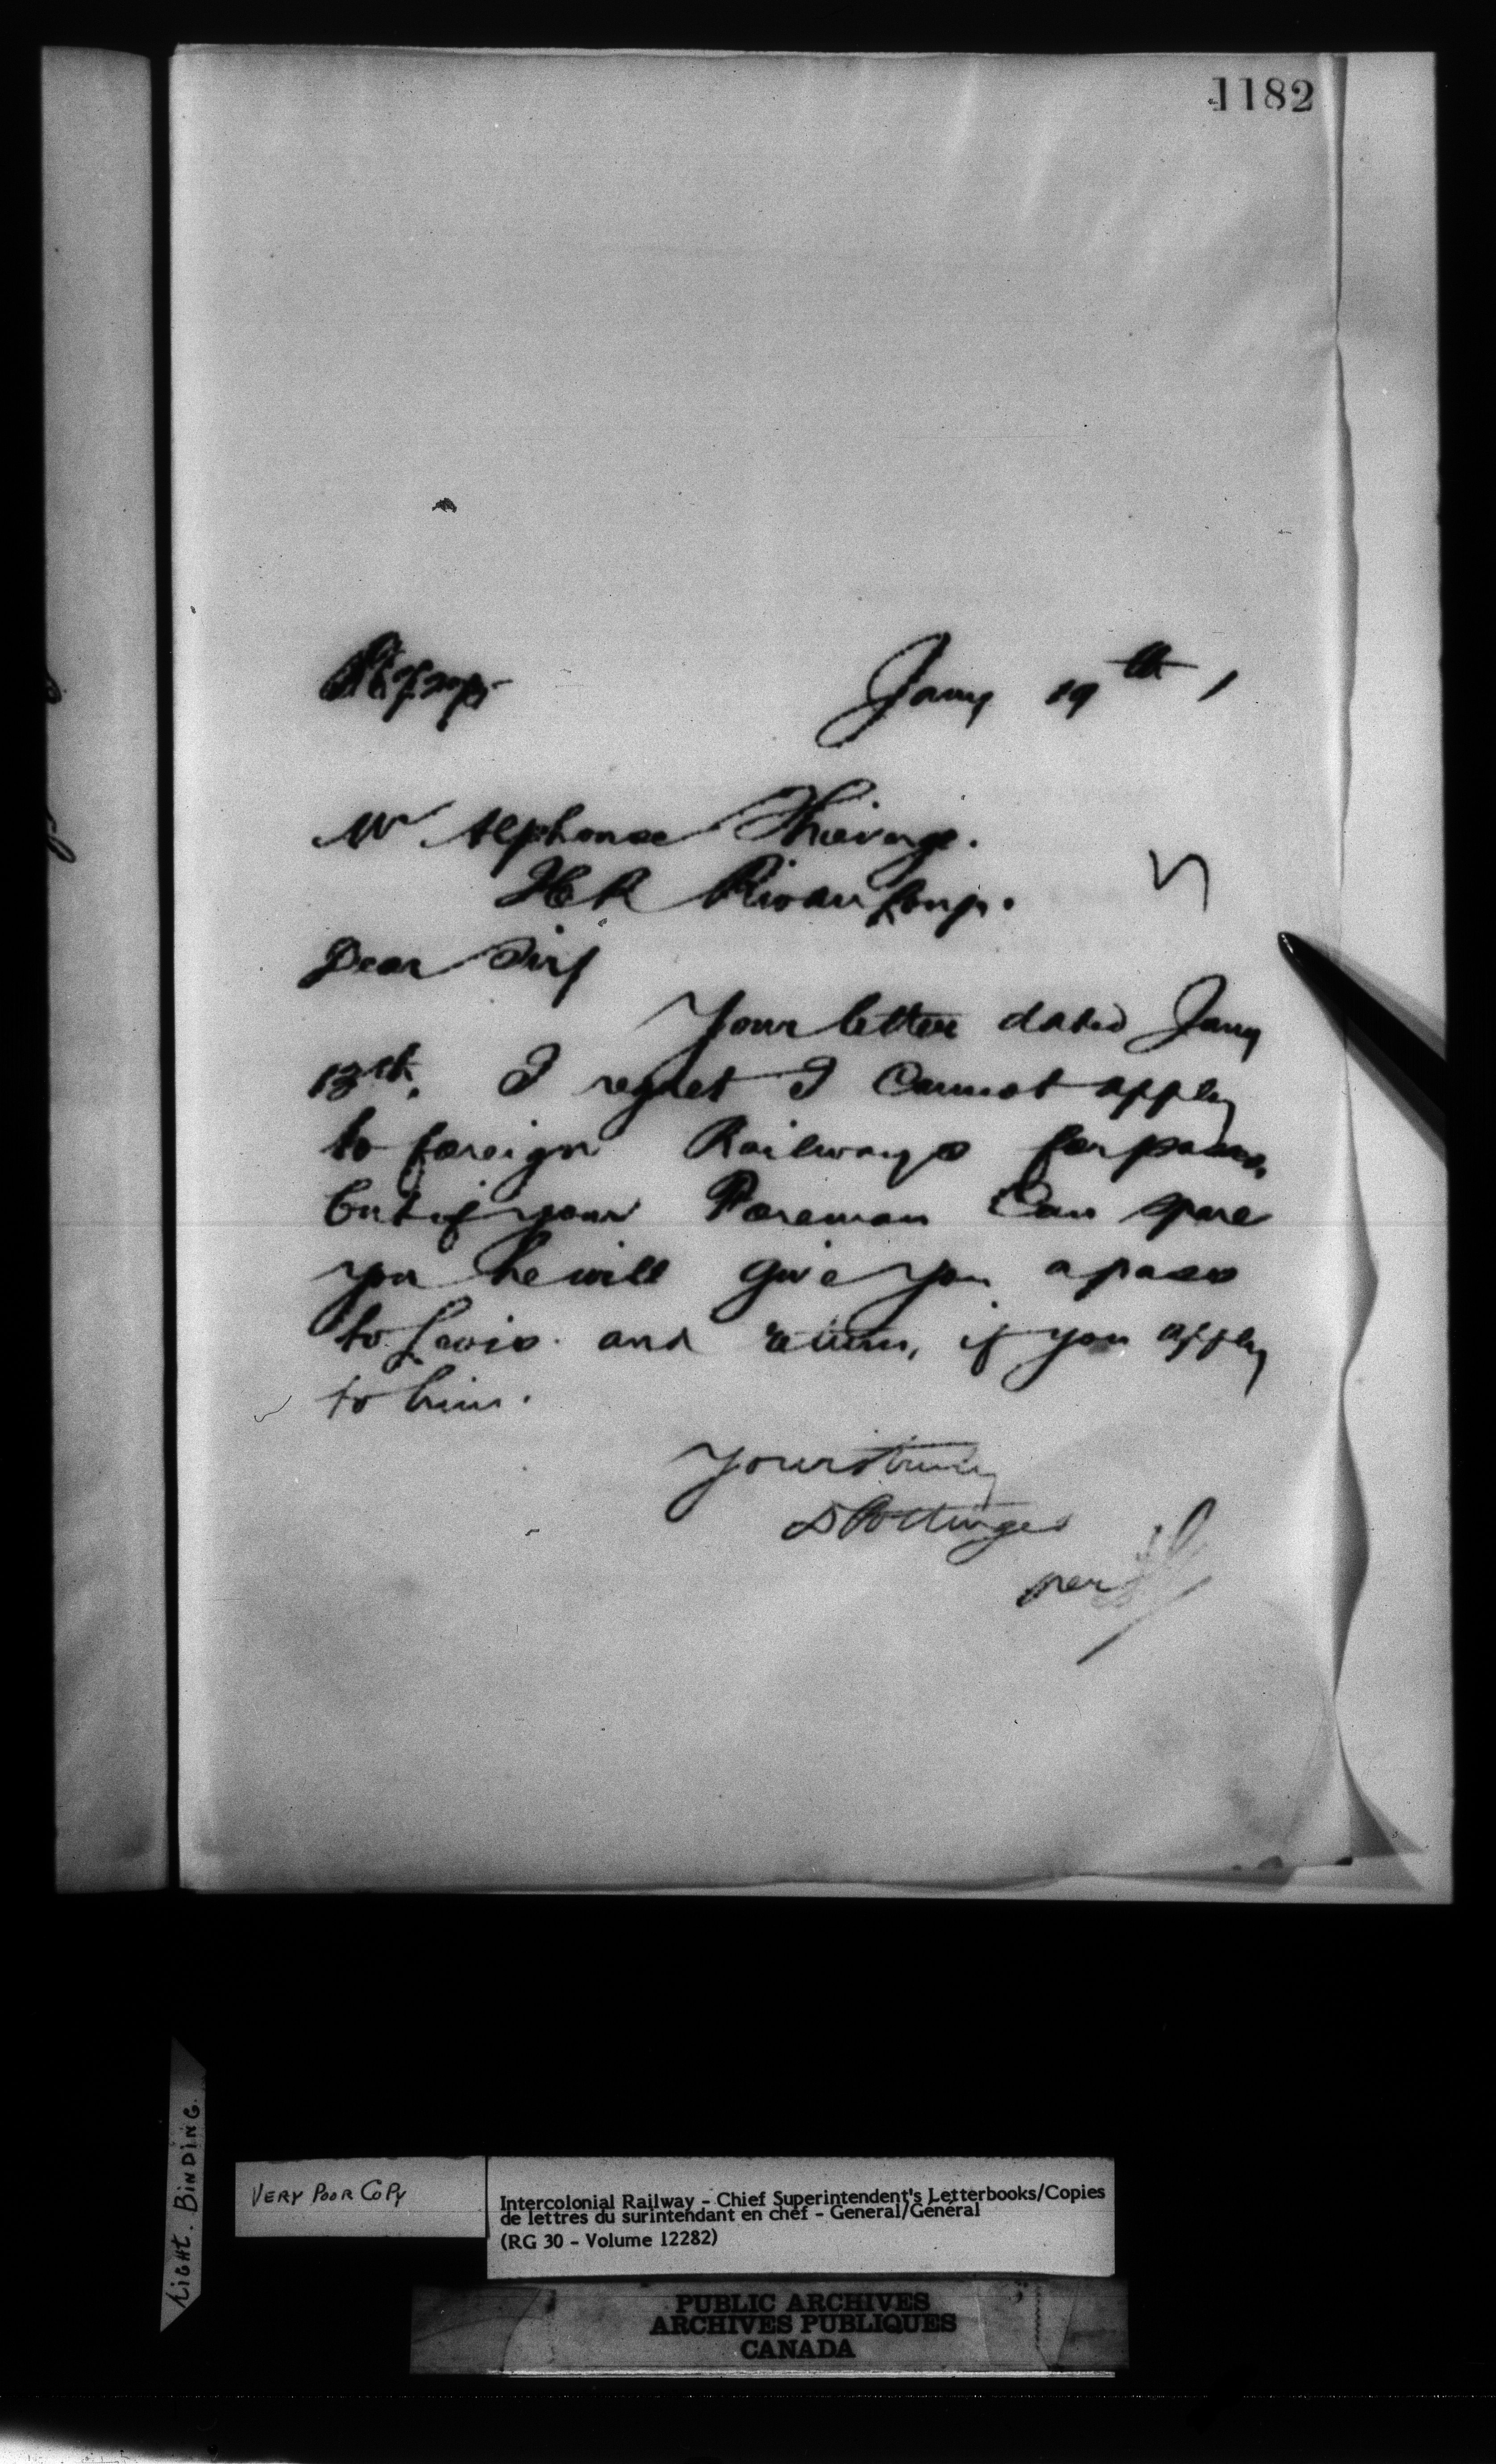 1182
Jany 19th,
Mr Alphonse Thivierge.
ICR Riv du Loup.
Dear Sir/
Your letter dated Jany
13th. I regret I cannot apply
to foreign Railways for passes,
but if your Foreman can spare
you he will give you a pass
to Levis. and return, if you apply
to him.
Yours truly
D Pottinger
per
VERY POOR COPY
TIGHT. BINDING.
Intercolonial Railway - Chief Superintendent's Letterbooks/Copies
de lettres du surintendant en chef - General/Général
(RG 30 - Volume 12282)
PUBLIC ARCHIVES
ARCHIVES PUBLIQUES
CANADA